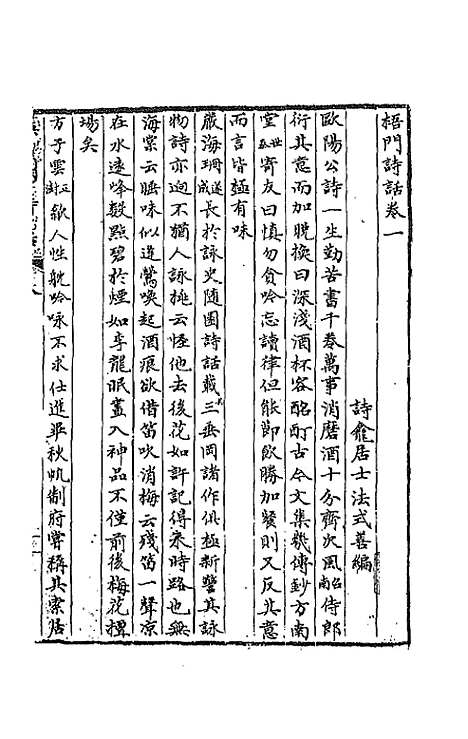 梧門詩話卷一
詩龕居士法式善編
歐陽公詩一生勤苦書千卷萬事消磨酒十分齊次風召南侍郎
衍其意而加脫換曰深淺酒杯容酩酊古今文集幾傳鈔方南
堂世泰寄友曰慎勿貪吟忘讀律但能節飲勝加餐則又反其意
而言皆極有味
嚴海珊遂成長於詠史隨園詩話載其三垂岡諸作俱極新警其詠
物詩亦迥不猶人詠桃云怪他去後花如許記得來時路也無
海棠云睡味似逢鶯喚起酒痕欲借笛吹消梅云殘笛一聲涼
在水遠峰數點碧於煙如李龍眠畫入神品不僅前後梅花擅
場矣
方子雲正澍歙人性耽吟咏不求仕進畢秋帆制府嘗稱其索居